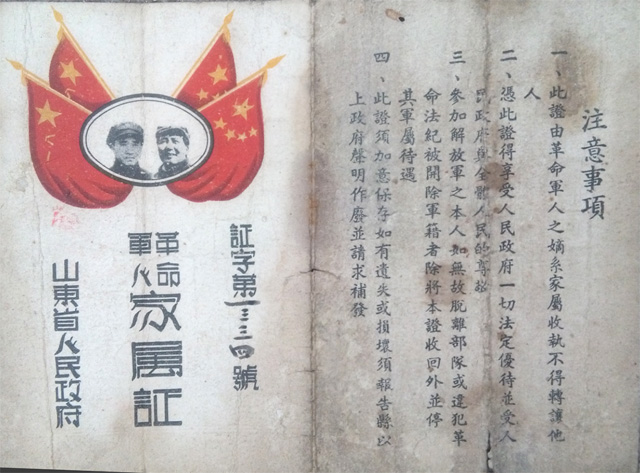 注意事項
一、此證由革命軍人之嫡系家屬收執不得轉讓他
人
二、憑此證得享受人民政府一切法定優待並受人
民政府與全體人民的尊敬
三、參加解放軍之本人如無故脫離部隊或違犯革
命法紀被開除軍籍者除將本證收回外並停
其軍屬待遇
四、此證須加意保存如有遺失或損壞須報告縣以
上政府聲明作廢並請求補發
証字第一三四號
革命
軍人
家属証
山東省人民政府
八一
八一